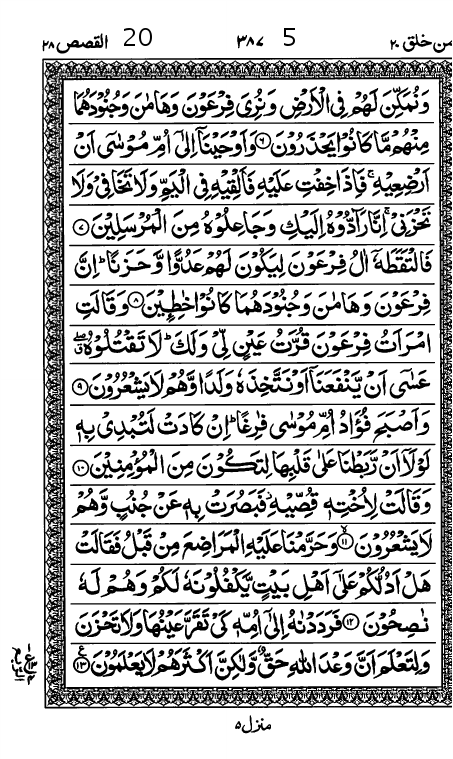 القصص ٢٨ 20 ٣٨٧ 5 من خلق ٢٠
وَنُمَكِّنَ لَهُمْ فِي الْاَرْضِ وَنُرِيَ فِرْعَوْنَ وَهَامٰنَ وَجُنُوْدَهُمَا
مِنْهُمْ مَّا كَانُوْا يَحْذَرُوْنَ ﴿٦﴾ وَاَوْحَيْنَآ اِلٰٓى اُمِّ مُوْسٰٓى اَنْ
اَرْضِعِيْهِ ۚ فَاِذَا خِفْتِ عَلَيْهِ فَاَلْقِيْهِ فِي الْيَمِّ وَلَا تَخَافِيْ وَلَا
تَحْزَنِيْ ۚ اِنَّا رَآدُّوْهُ اِلَيْكِ وَجَاعِلُوْهُ مِنَ الْمُرْسَلِيْنَ ﴿٧﴾
فَالْتَقَطَهٗٓ اٰلُ فِرْعَوْنَ لِيَكُوْنَ لَهُمْ عَدُوًّا وَّحَزَنًا ؕ اِنَّ
فِرْعَوْنَ وَهَامٰنَ وَجُنُوْدَهُمَا كَانُوْا خٰطِـِٕيْنَ ﴿٨﴾ وَقَالَتِ
امْرَاَتُ فِرْعَوْنَ قُرَّتُ عَيْنٍ لِّيْ وَلَكَ ؕ لَا تَقْتُلُوْهُ ۖ
عَسٰٓى اَنْ يَّنْفَعَنَآ اَوْ نَتَّخِذَهٗ وَلَدًا وَّهُمْ لَا يَشْعُرُوْنَ ﴿٩﴾
وَاَصْبَحَ فُؤَادُ اُمِّ مُوْسٰى فٰرِغًا ؕ اِنْ كَادَتْ لَتُبْدِيْ بِهٖ
لَوْلَآ اَنْ رَّبَطْنَا عَلٰى قَلْبِهَا لِتَكُوْنَ مِنَ الْمُؤْمِنِيْنَ ﴿١٠﴾
وَقَالَتْ لِاُخْتِهٖ قُصِّيْهِ ۫ فَبَصُرَتْ بِهٖ عَنْ جُنُبٍ وَّهُمْ
لَا يَشْعُرُوْنَ ﴿١١﴾ وَحَرَّمْنَا عَلَيْهِ الْمَرَاضِعَ مِنْ قَبْلُ فَقَالَتْ
هَلْ اَدُلُّكُمْ عَلٰٓى اَهْلِ بَيْتٍ يَّكْفُلُوْنَهٗ لَكُمْ وَهُمْ لَهٗ
نٰصِحُوْنَ ﴿١٢﴾ فَرَدَدْنٰهُ اِلٰٓى اُمِّهٖ كَيْ تَقَرَّ عَيْنُهَا وَلَا تَحْزَنَ
وَلِتَعْلَمَ اَنَّ وَعْدَ اللّٰهِ حَقٌّ وَّلٰكِنَّ اَكْثَرَهُمْ لَا يَعْلَمُوْنَ ﴿١٣﴾
منزل ٥